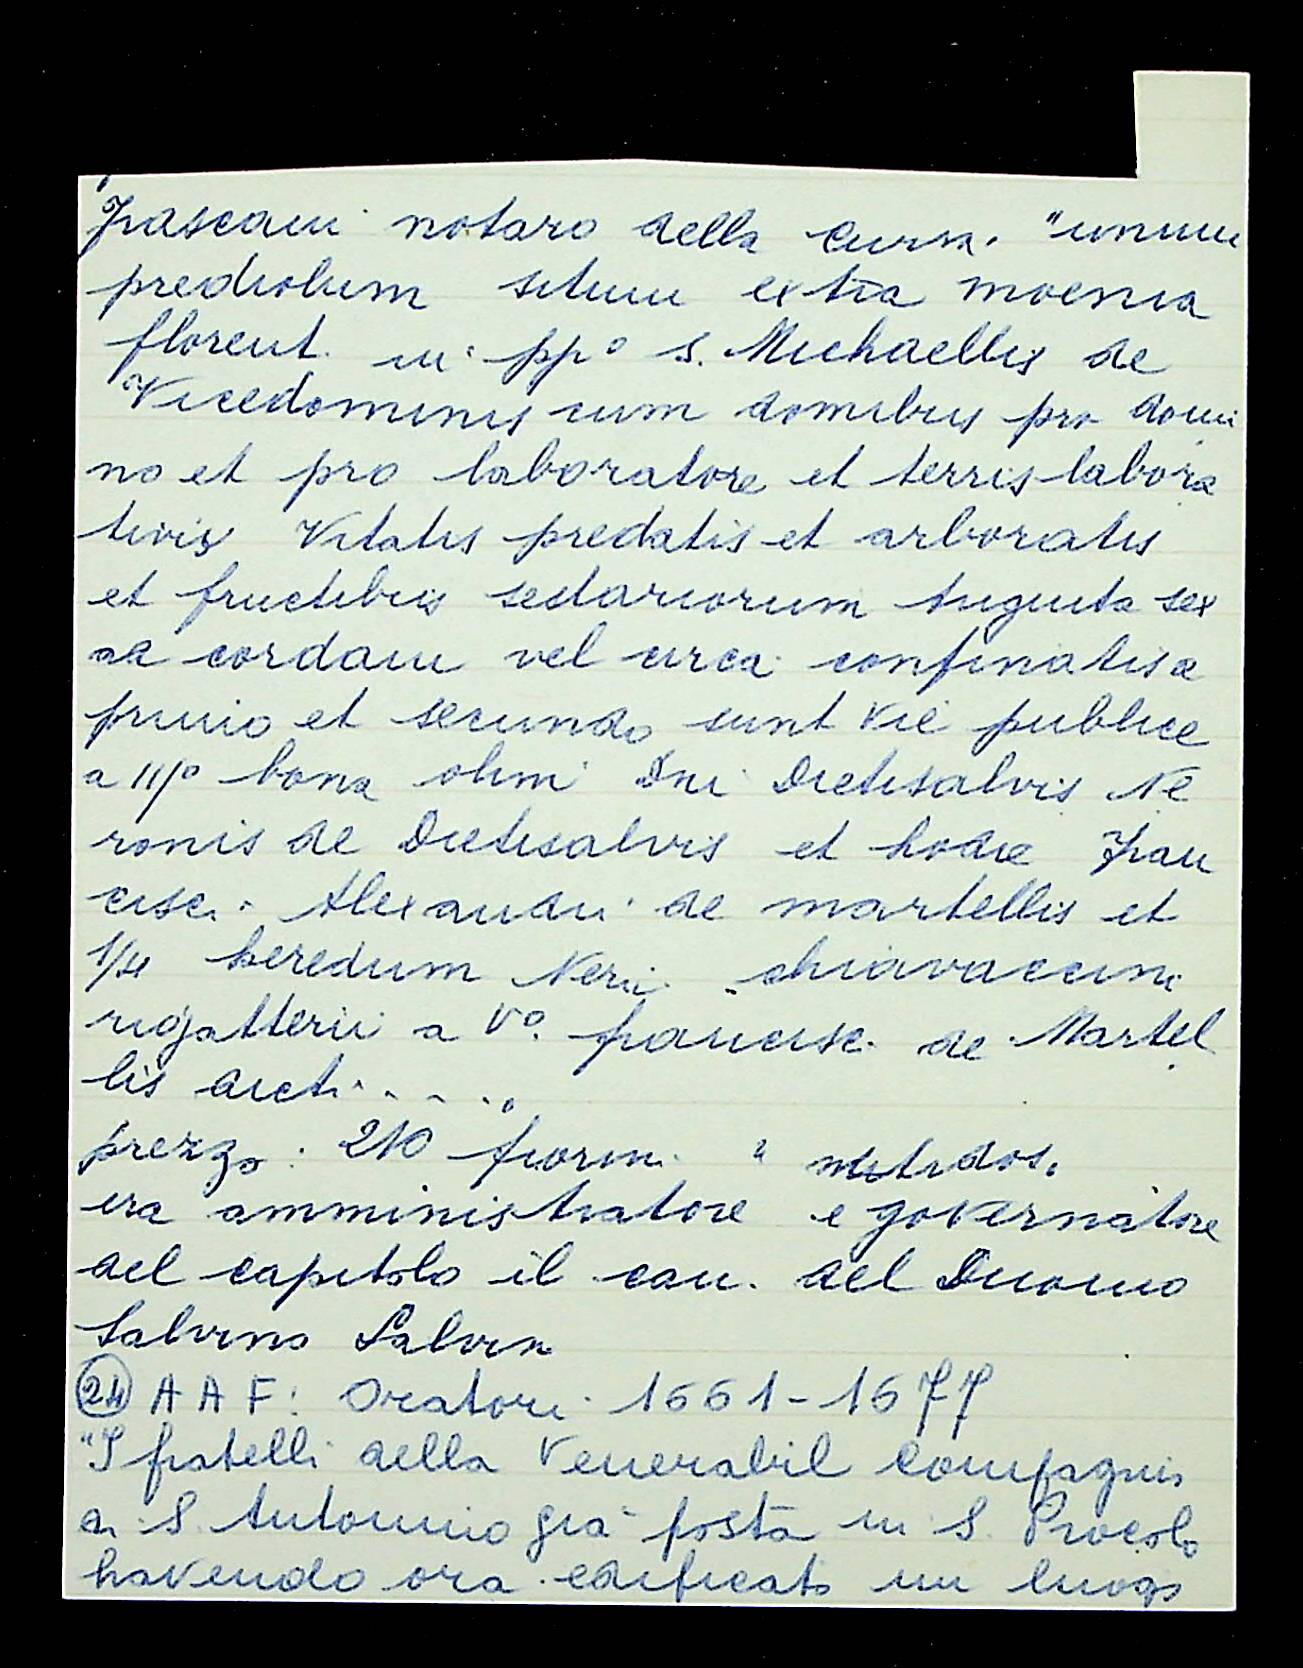 Frascani notaro della Curia. "unum
prediolum situm extra moenia
florent. in ppo S. Michaellis de
Vicedominis cum domibus pro domi
no et pro laboratore et terris labora
tivis Vitatis predatis et arboratis
et fructibus sectariorum triguita sex
ad cordam vel circa confinatis a
primo et secundo sunt vie publice
a IIIo bona olim Dni Dietisalvis Ne
ronis de Dietisalvis et hodie Fran
cisci Alexandri de martellis et
1/4 heredum Neri chiavaccini
rigatterii a Vo. francisc. de Martel
lis dicti . . . . "
prezzo: 210 fiorini "
era amministratore e governatore
del capitolo il can. del Duomo
Salvino Salvini
24 A A F: Oratori 1661-1677
"I fratelli della Venerabil Compagnis
di S. Antonino gia posta in S. Procolo
havendo ora edificato un luogo